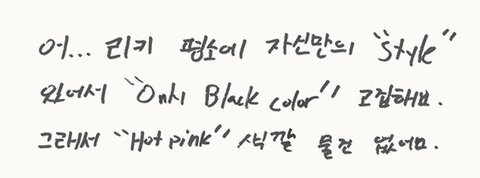 어... 리키 평소에 자신만의 "style"
있어서 "Only Black color" 고집해요.
그래서 "Hot pink" 색깔 물건 없어요.